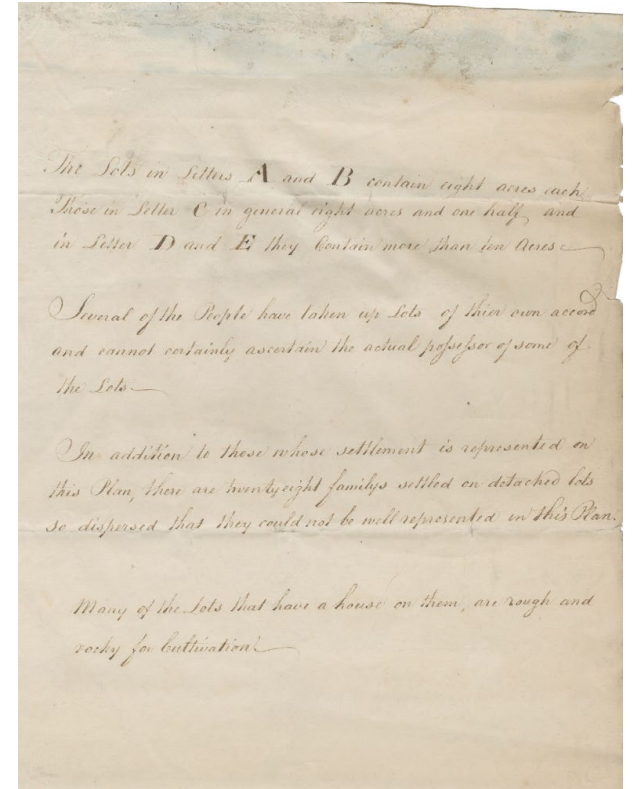 The Lots in Letters A and B contain eight acres each
Those in Letter C in general eight acres and one half, and
in Letter D and E they Contain more than ten Acres
Several of the People have taken up Lots of thier own accord
and cannot certainly ascertain the actual possessor of some of
the Lots
In addition to these whose settlement is represented on
this Plan, there are twentyeight familys settled on detached lots
so dispersed that they could not be well represented in this Plan.
Many of the Lots that have a house on them, are rough and
rocky for Cultivation